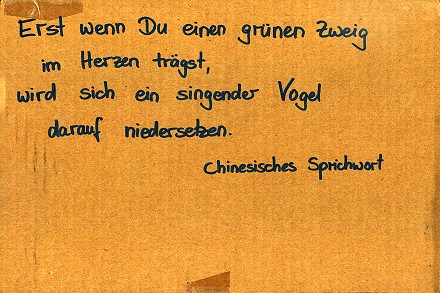 Erst wenn Du einen grünen Zweig
im Herzen trägst,
wird sich ein singender Vogel
darauf niedersetzen.
Chinesisches Sprichwort